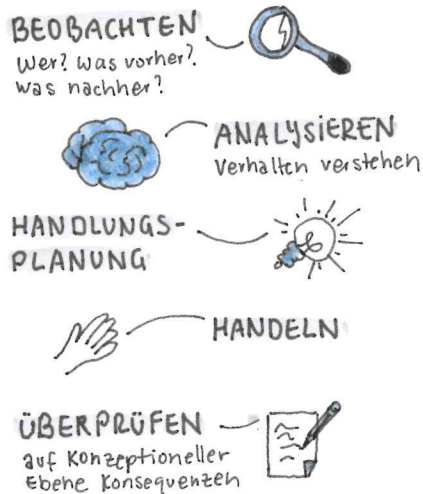 BEOBACHTEN
Wer? Was vorher?
was nachher?
ANALYSIEREN
Verhalten verstehen
HANDLUNGS-
PLANUNG
HANDELN
ÜBERPRÜFEN
auf Konzeptioneller
Ebene Konsequenzen